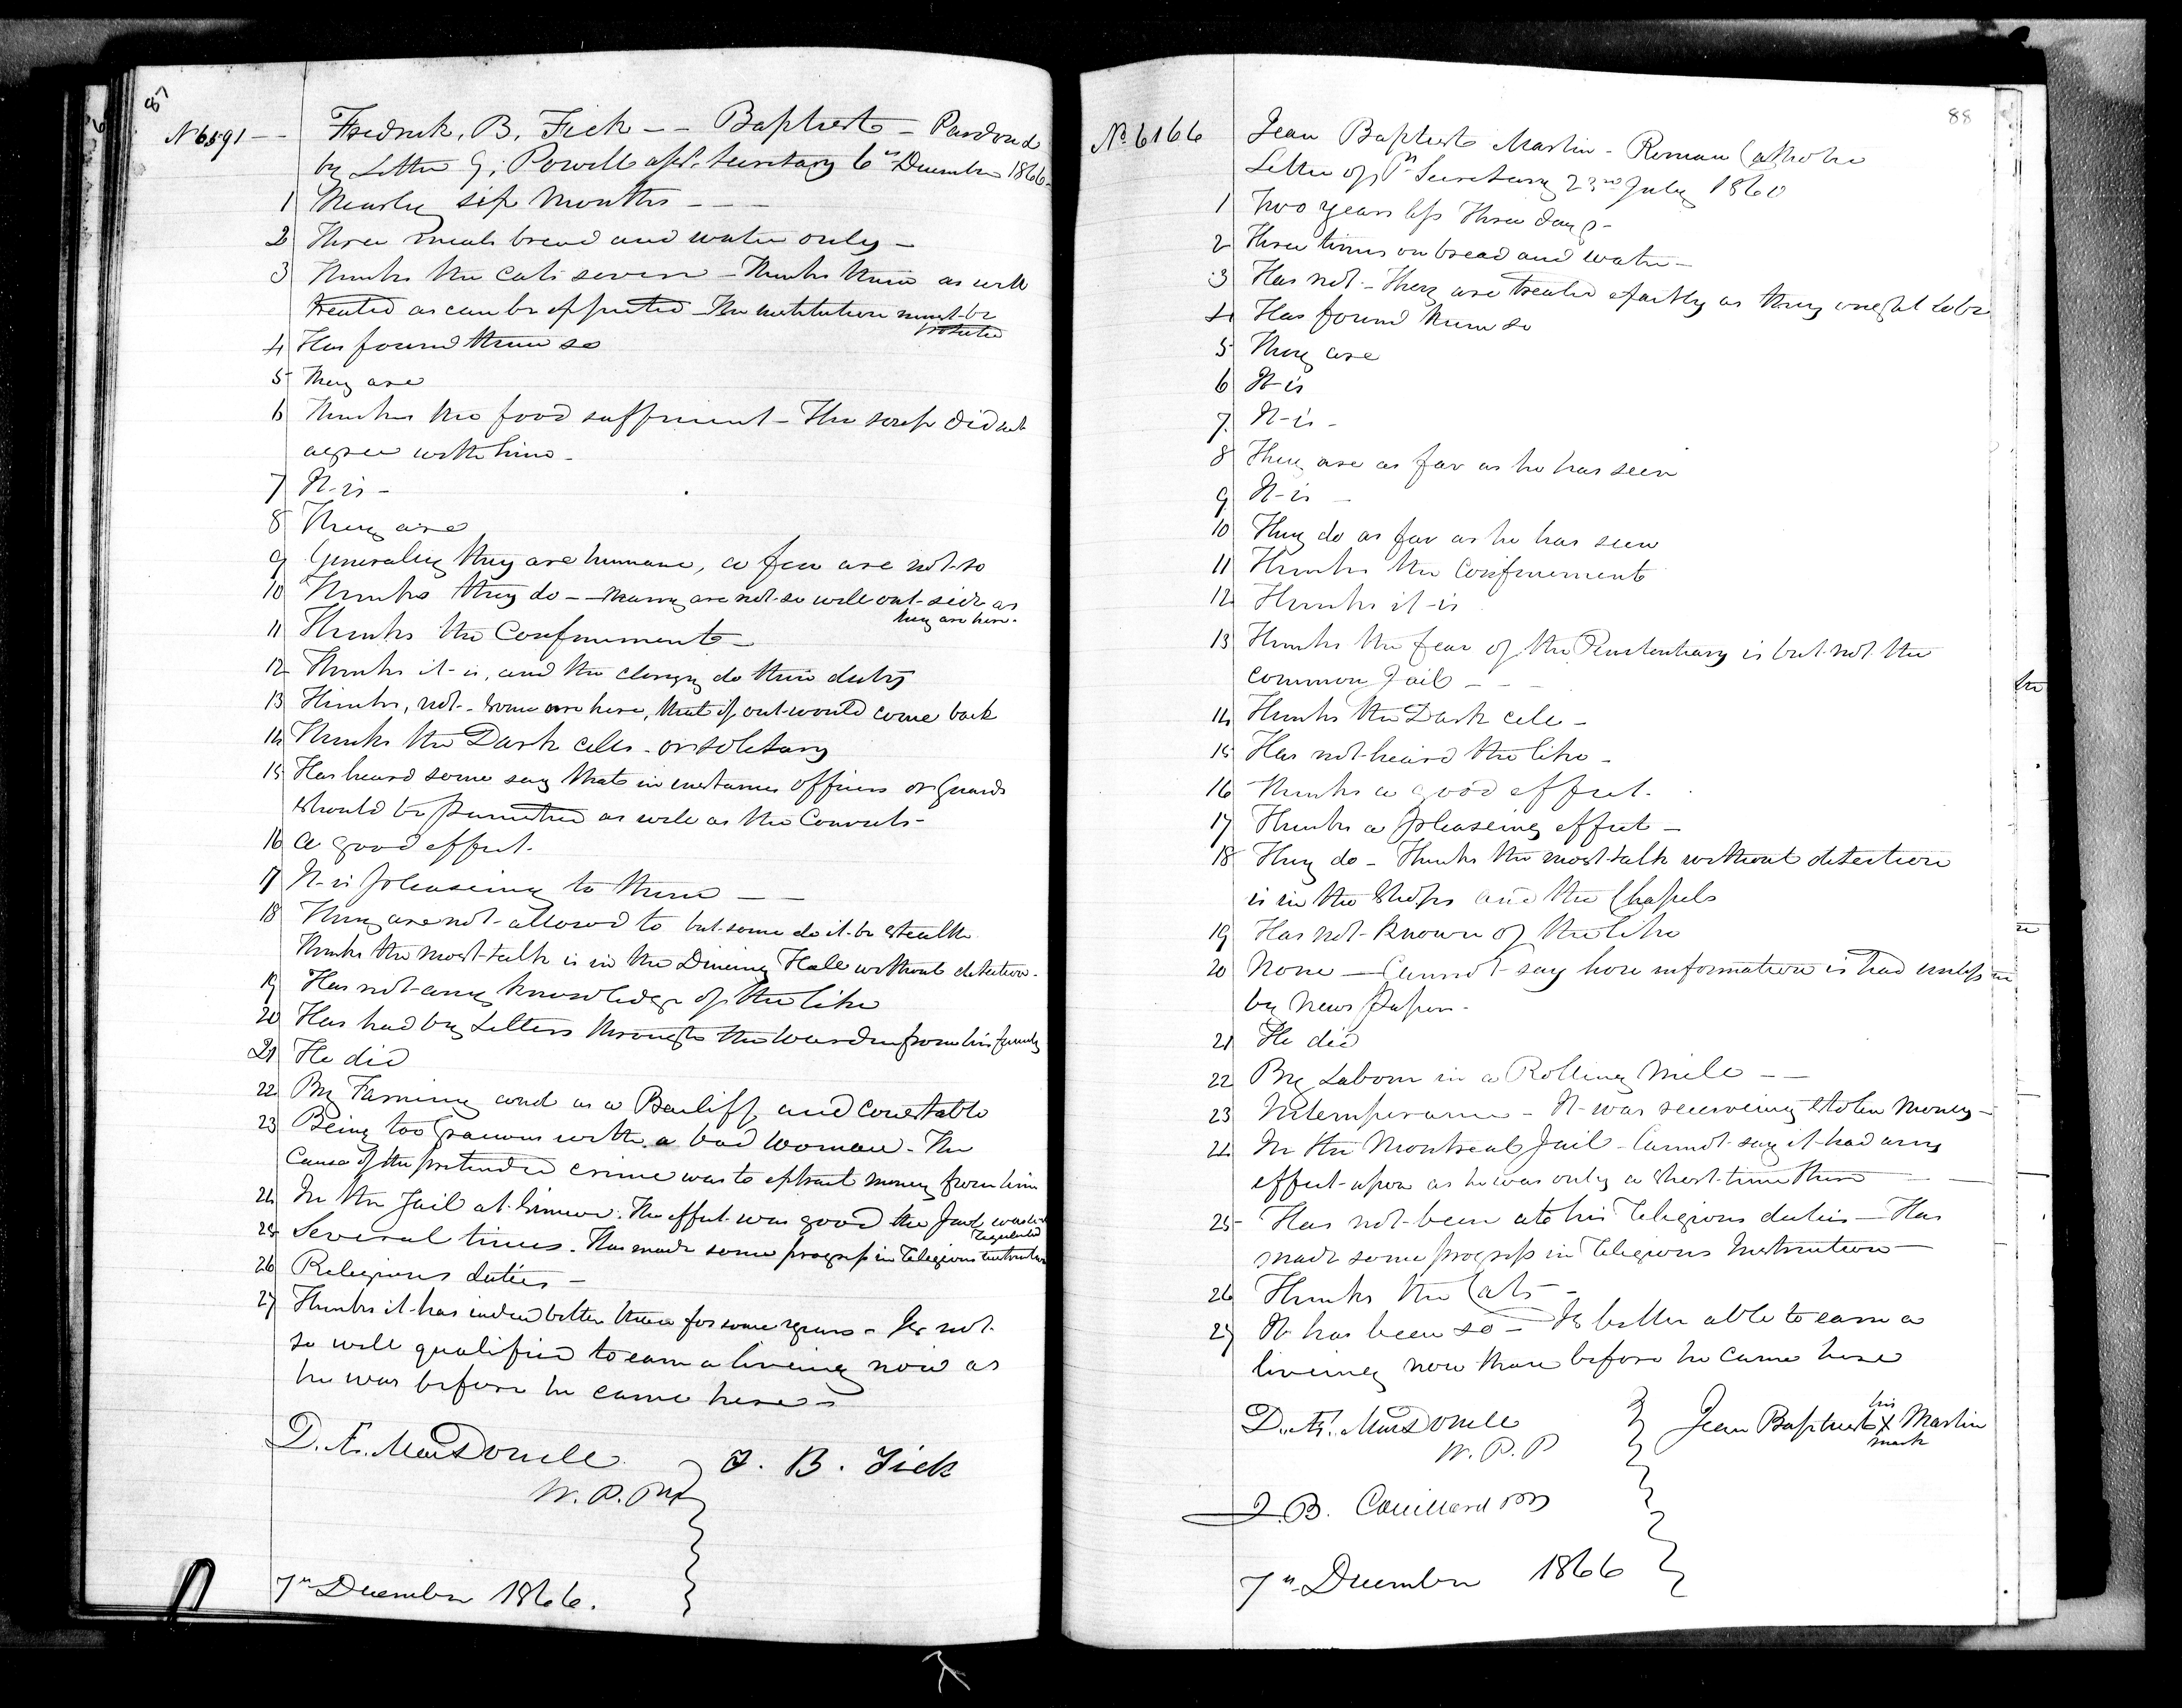 87
No 6591 — Fredrick, B. Fick — — Baptist — Pardoned
by Letter G, Powell asst. Secretary 6th December 1866
1 Nearly six Months — — —
2 Three meals bread and water only —
3 Thinks the cats severe — Thinks them as well
treated as can be expected The institution must be
4 Has found them so
5 They are
6 Thinks the food sufficient — The soup did not
agree with him —
7 It is —
8 They are
9 Generally they are humane, a few are not so
10 Thinks they do — many are not so well out-side as
they are here.
11 Thinks the Confinement —
12 Thinks it is, and the clergy do their duty
13 Thinks, not — some are here, that if out would come back
14 Thinks the Dark cells — or solitary
15 Has heard some say that in instances officers or Guards
should be punished as well as the Convicts —
16 A good effect.
17 It is pleaseing to them — —
18 They are not allowed to but some do it by stealth
Thinks the most talk is in the Dineing Hall without detection —
19 Has not any knowledge of the like
20 Has had by Letters through the Warden from his family
21 He did
22 By Farming and as a Bailiff and Constable
23 Being too with a bad woman — The
cause of the pretended crime was to extract money from him
24 In the Jail at Simcoe. The effect was good the Jail was
regulated
25 Several times. Has made some progress in Religious instruction
26 Religious duties —
27 Thinks it has been better than for some years — Is not
so well qualified to earn a liveing now as
he was before he came here —
D. Æ. MacDonell
W. P. Py
F. B. Fick
7th December 1866.
88
No 6166 Jean Baptiste Martin — Roman Catholic
Letter of Pl Secretary 23rd July 1860
1 Two years less Three days —
2 Three times on bread and water —
3 Has not — They are treated exactly as they ought to be
4 Has found them so
5 They are
6 It is
7 It is —
8 They are as far as he has seen
9 It is —
10 They do as far as he has seen
11 Thinks the Confinement
12 Thinks it is
13 Thinks the fear of the Penitentiary is but not the
common Jail — — —
14 Thinks the Dark cell —
15 Has not heard the like —
16 Thinks a good effect.
17 Thinks a pleaseing effect —
18 They do — Thinks the most talk without detection
is in the Shops and the Chapels
19 Has not known of the like
20 None — Cannot say how information is had unless
by News Papers —
21 He did
22 By Labour in a Rolling Mill — —
23 Intemperance — It was receiveing stolen Money —
24 In the Montreal Jail — Cannot say it had any
effect upon as he was only a short time there —
25 Has not been at his Religious duties — Has
made some progress in Religious Instruction —
26 Thinks the Cats —
27 It has been so — Is better able to earn a
liveing now than before he came here
D. Æ. MacDonell
W. P. P
Jean Baptiste his X mark Martin
J. B. Couillard
7th December 1866